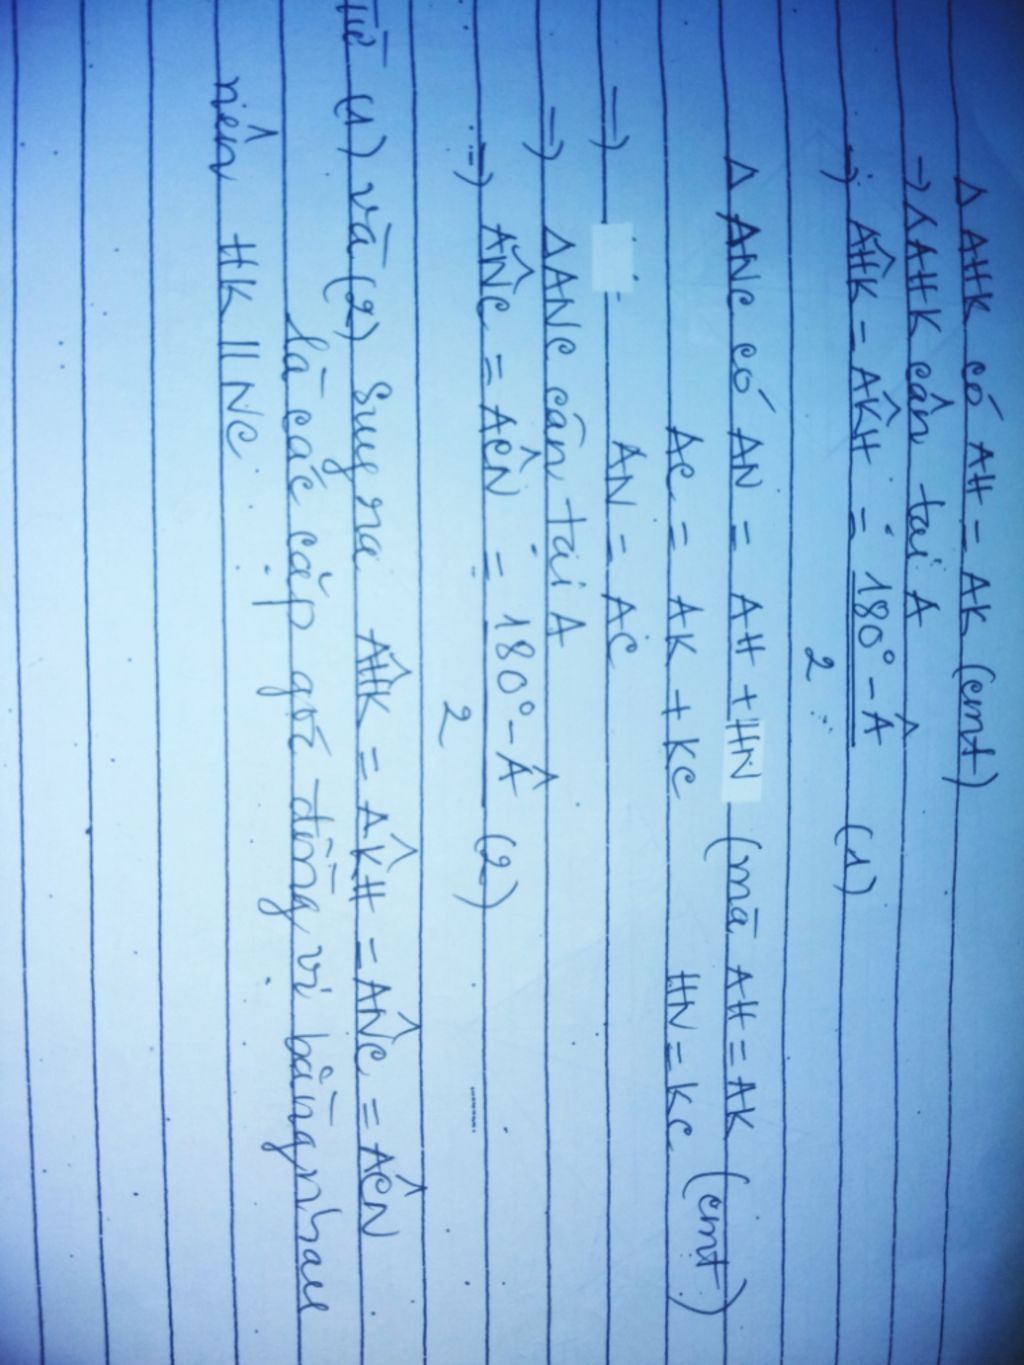 Δ AHK có AH = AK (cmt)
→ ΔAHK cân tại A
→ AĤK = AK̂H = 180° - Â / 2 (1)
Δ ANC có AN = AH + HN (mà AH = AK
AC = AK + KC HN = KC (cmt)
=> AN = AC
=> ΔANC cân tại A
=> AN̂C = AĈN = 180° - Â / 2 (2)
Từ (1) và (2) suy ra AĤK = AK̂H = AN̂C = AĈN
là các cặp góc đồng vị bằng nhau
nên HK // NC